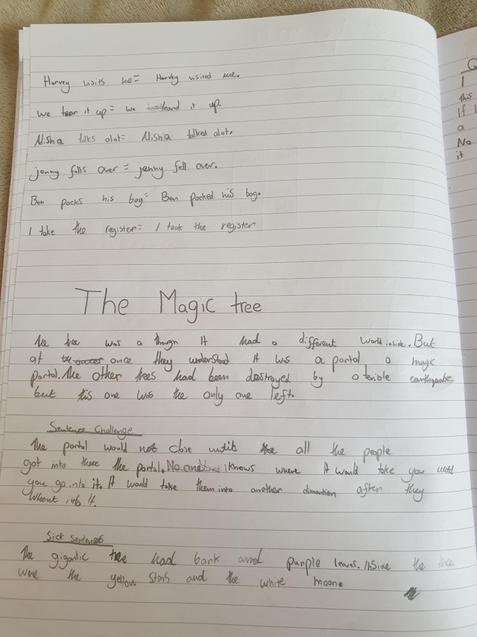 Harvey visits me = Harvey visited me.
we tear it up = we it up.
Alisha talks alot = Alisha talked alot.
jenny falls over = jenny fell over.
Ben packs his bag = Ben packed his bag.
I take the register = I took the register
The Magic tree
The tree was a It had a different world inside. But
at once they understood it was a portal a magic
portal. The other trees had been destroyed by a terible earthquake
but this one was the only one left.
Sentence Challenge
The portal would not close until all the people
got into the portal. No one knows where it would take you until
you go into it. It would take them into another dimention after they
it.
Sick Sentences
The gigantic tree had bark and purple leaves. Inside the tree
were the yellow stars and the white moon.
Q
I
this
If
a
No
it